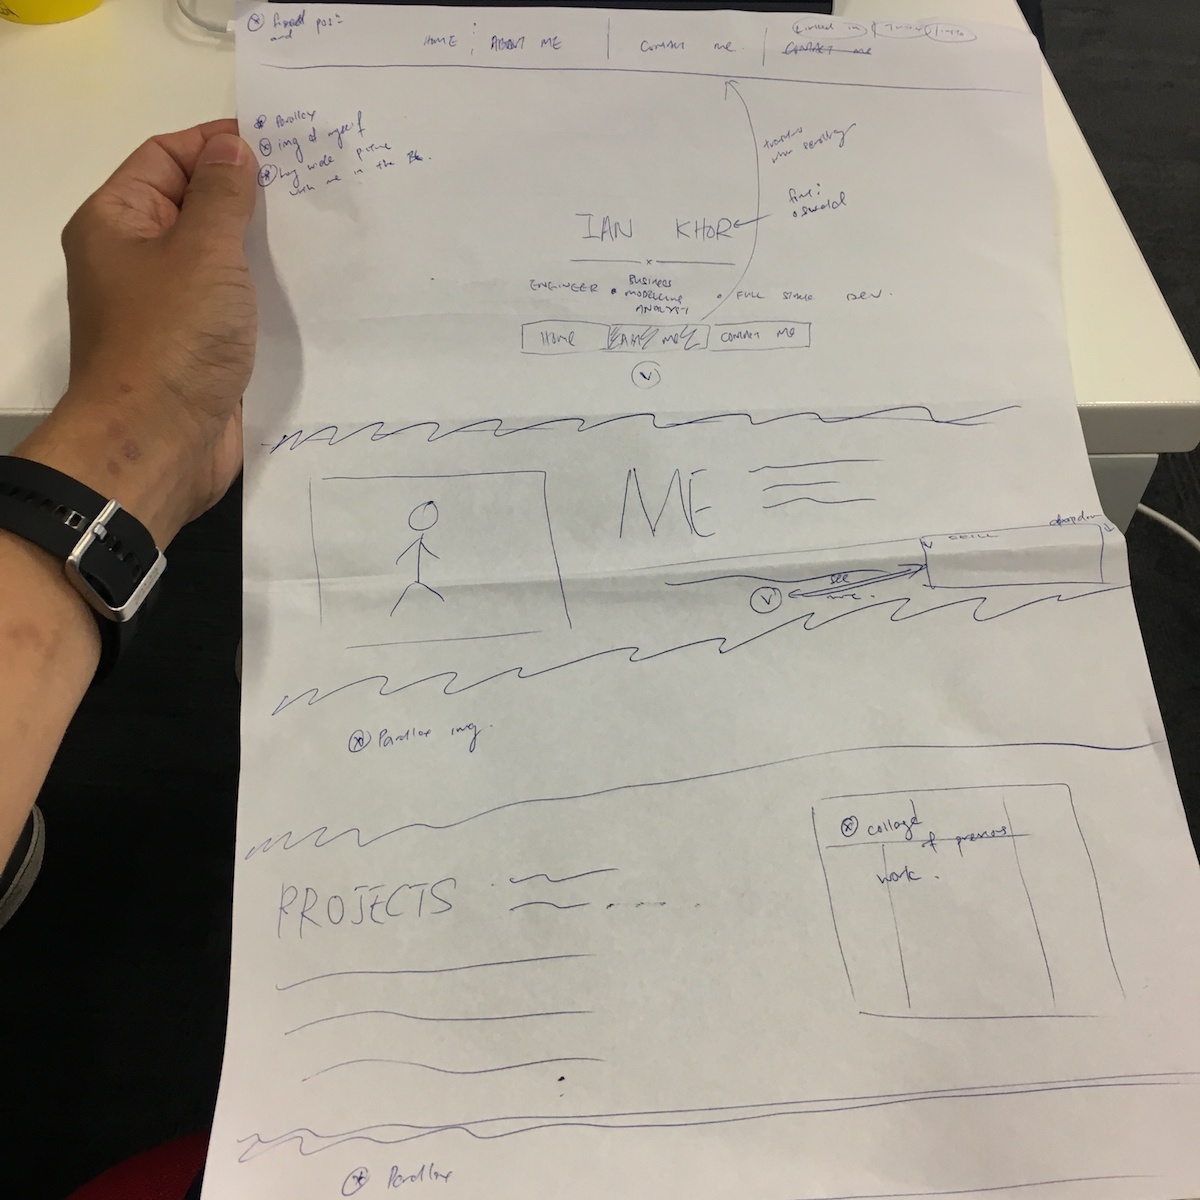 fixed pos:
and
HOME ABOUT ME CONTACT ME. Linked in
CONTACT ME
Parallax
img of myself
wide picture
with me in the
when scrolling
font:
oswald
IAN KHOR
ENGINEER • BUSINESS MODELLING ANALYST • FULL STACK DEV.
HOME ABT ME CONTACT ME
V
ME
dropdown
SKILL
see
more.
V
Parallax img.
collage
of previous
work.
PROJECTS
Parallax